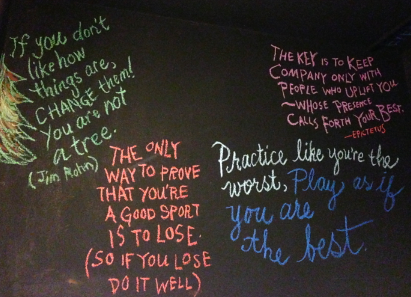 If you don't
like how
things are,
CHANGE them!
You are not
a tree.
(Jim Rohn)
THE KEY IS TO KEEP
COMPANY ONLY WITH
PEOPLE WHO UPLIFT YOU
~WHOSE PRESENCE
CALLS FORTH YOUR BEST.
-EPICTETUS
THE ONLY
WAY TO PROVE
THAT YOU'RE
A GOOD SPORT
IS TO LOSE.
(SO IF YOU LOSE
DO IT WELL)
Practice like you're the
worst, Play as if
you are
the best.